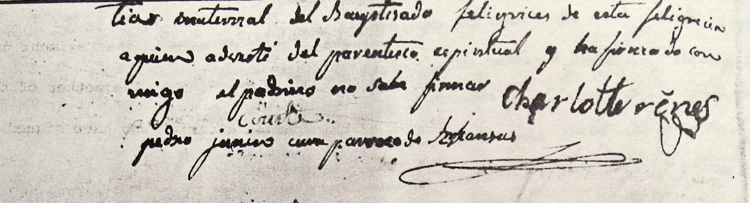 tias maternal del Baptisado feligrices de esta feligrecia
a quien adverti del parentisco espiritual y ha firmado con
migo el padrino no sabe firmar Charlotte rénes
pedro janin cura parroco de Arkansas